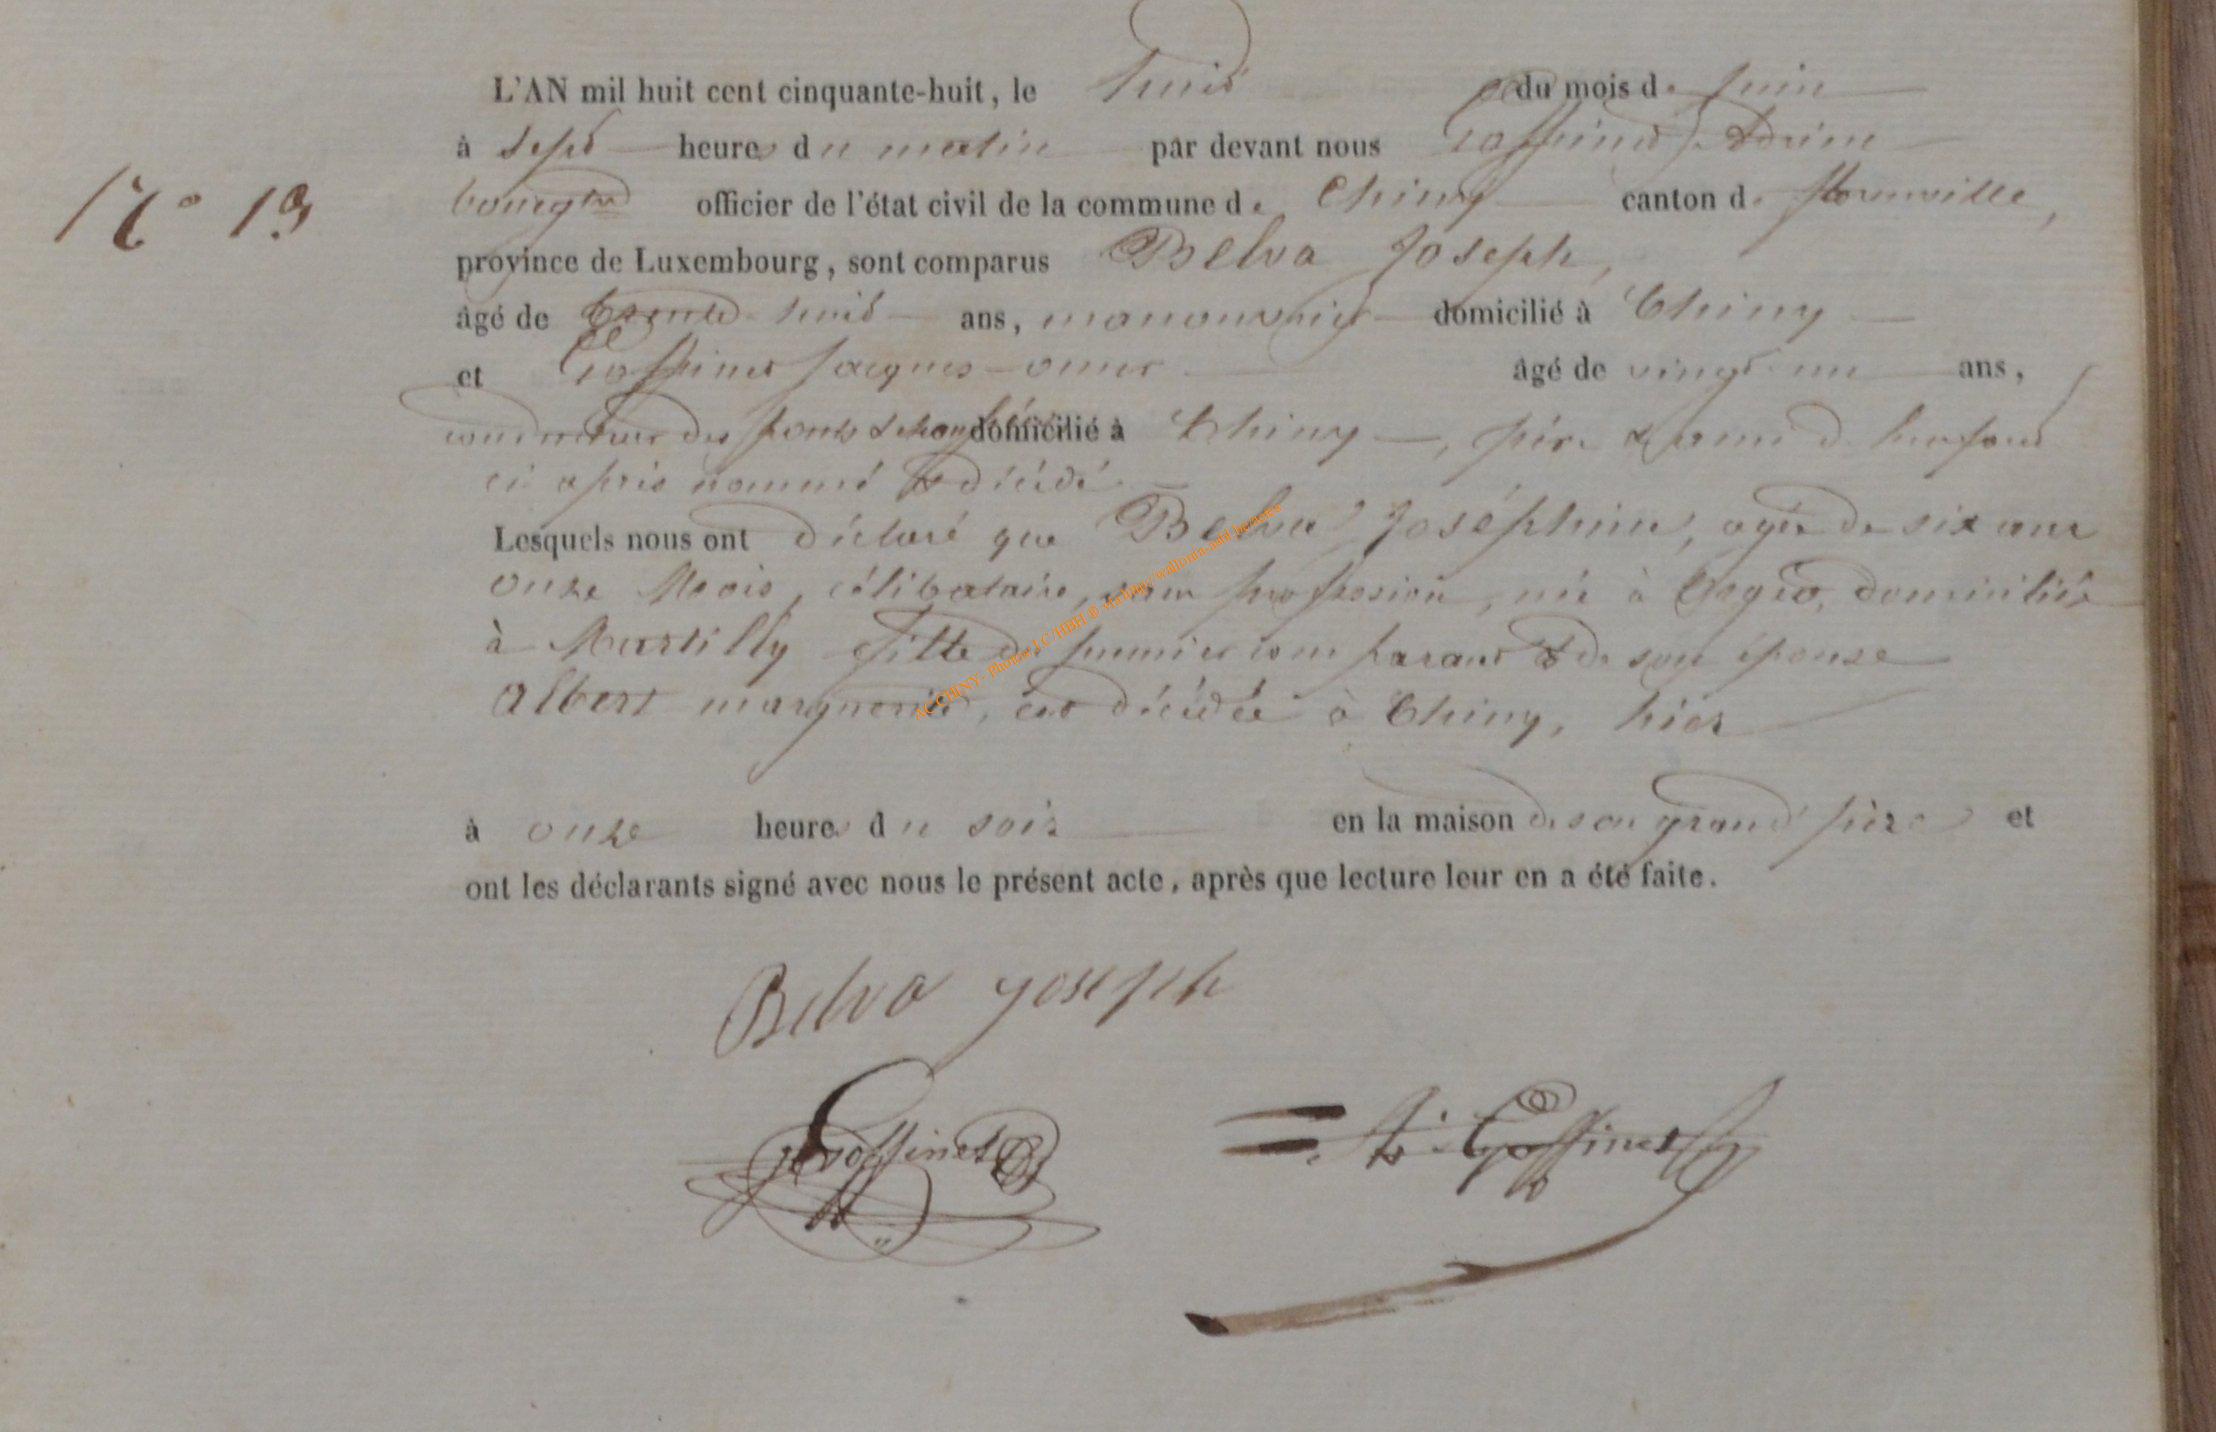 L'AN mil huit cent cinquante-huit, le huit du mois de Juin
à sept heures du matin par devant nous Goffinet
N° 19
bourgtre officier de l'état civil de la commune de Chiny canton de florenville,
province de Luxembourg, sont comparus Belva Joseph,
âgé de trente huit ans, manouvrier domicilié à Chiny
et Goffinet Jacques-omer âgé de vingt un ans,
conducteur des ponts & chaussées domicilié à Chiny, père & ami de l'enfant
ci après nommé & décédé
Lesquels nous ont déclaré que Belva Joséphine, agée de six ans
onze Mois, célibataire, sans profession, née à domiciliée
à Martilly fille du premier comparant & de son epouse
Albert marguerite, est décédée à Chiny, hier
à onze heures du soir en la maison de son grand père et
ont les déclarants signé avec nous le présent acte, après que lecture leur en a été faite.
Belva joseph
Goffinet
Goffinet